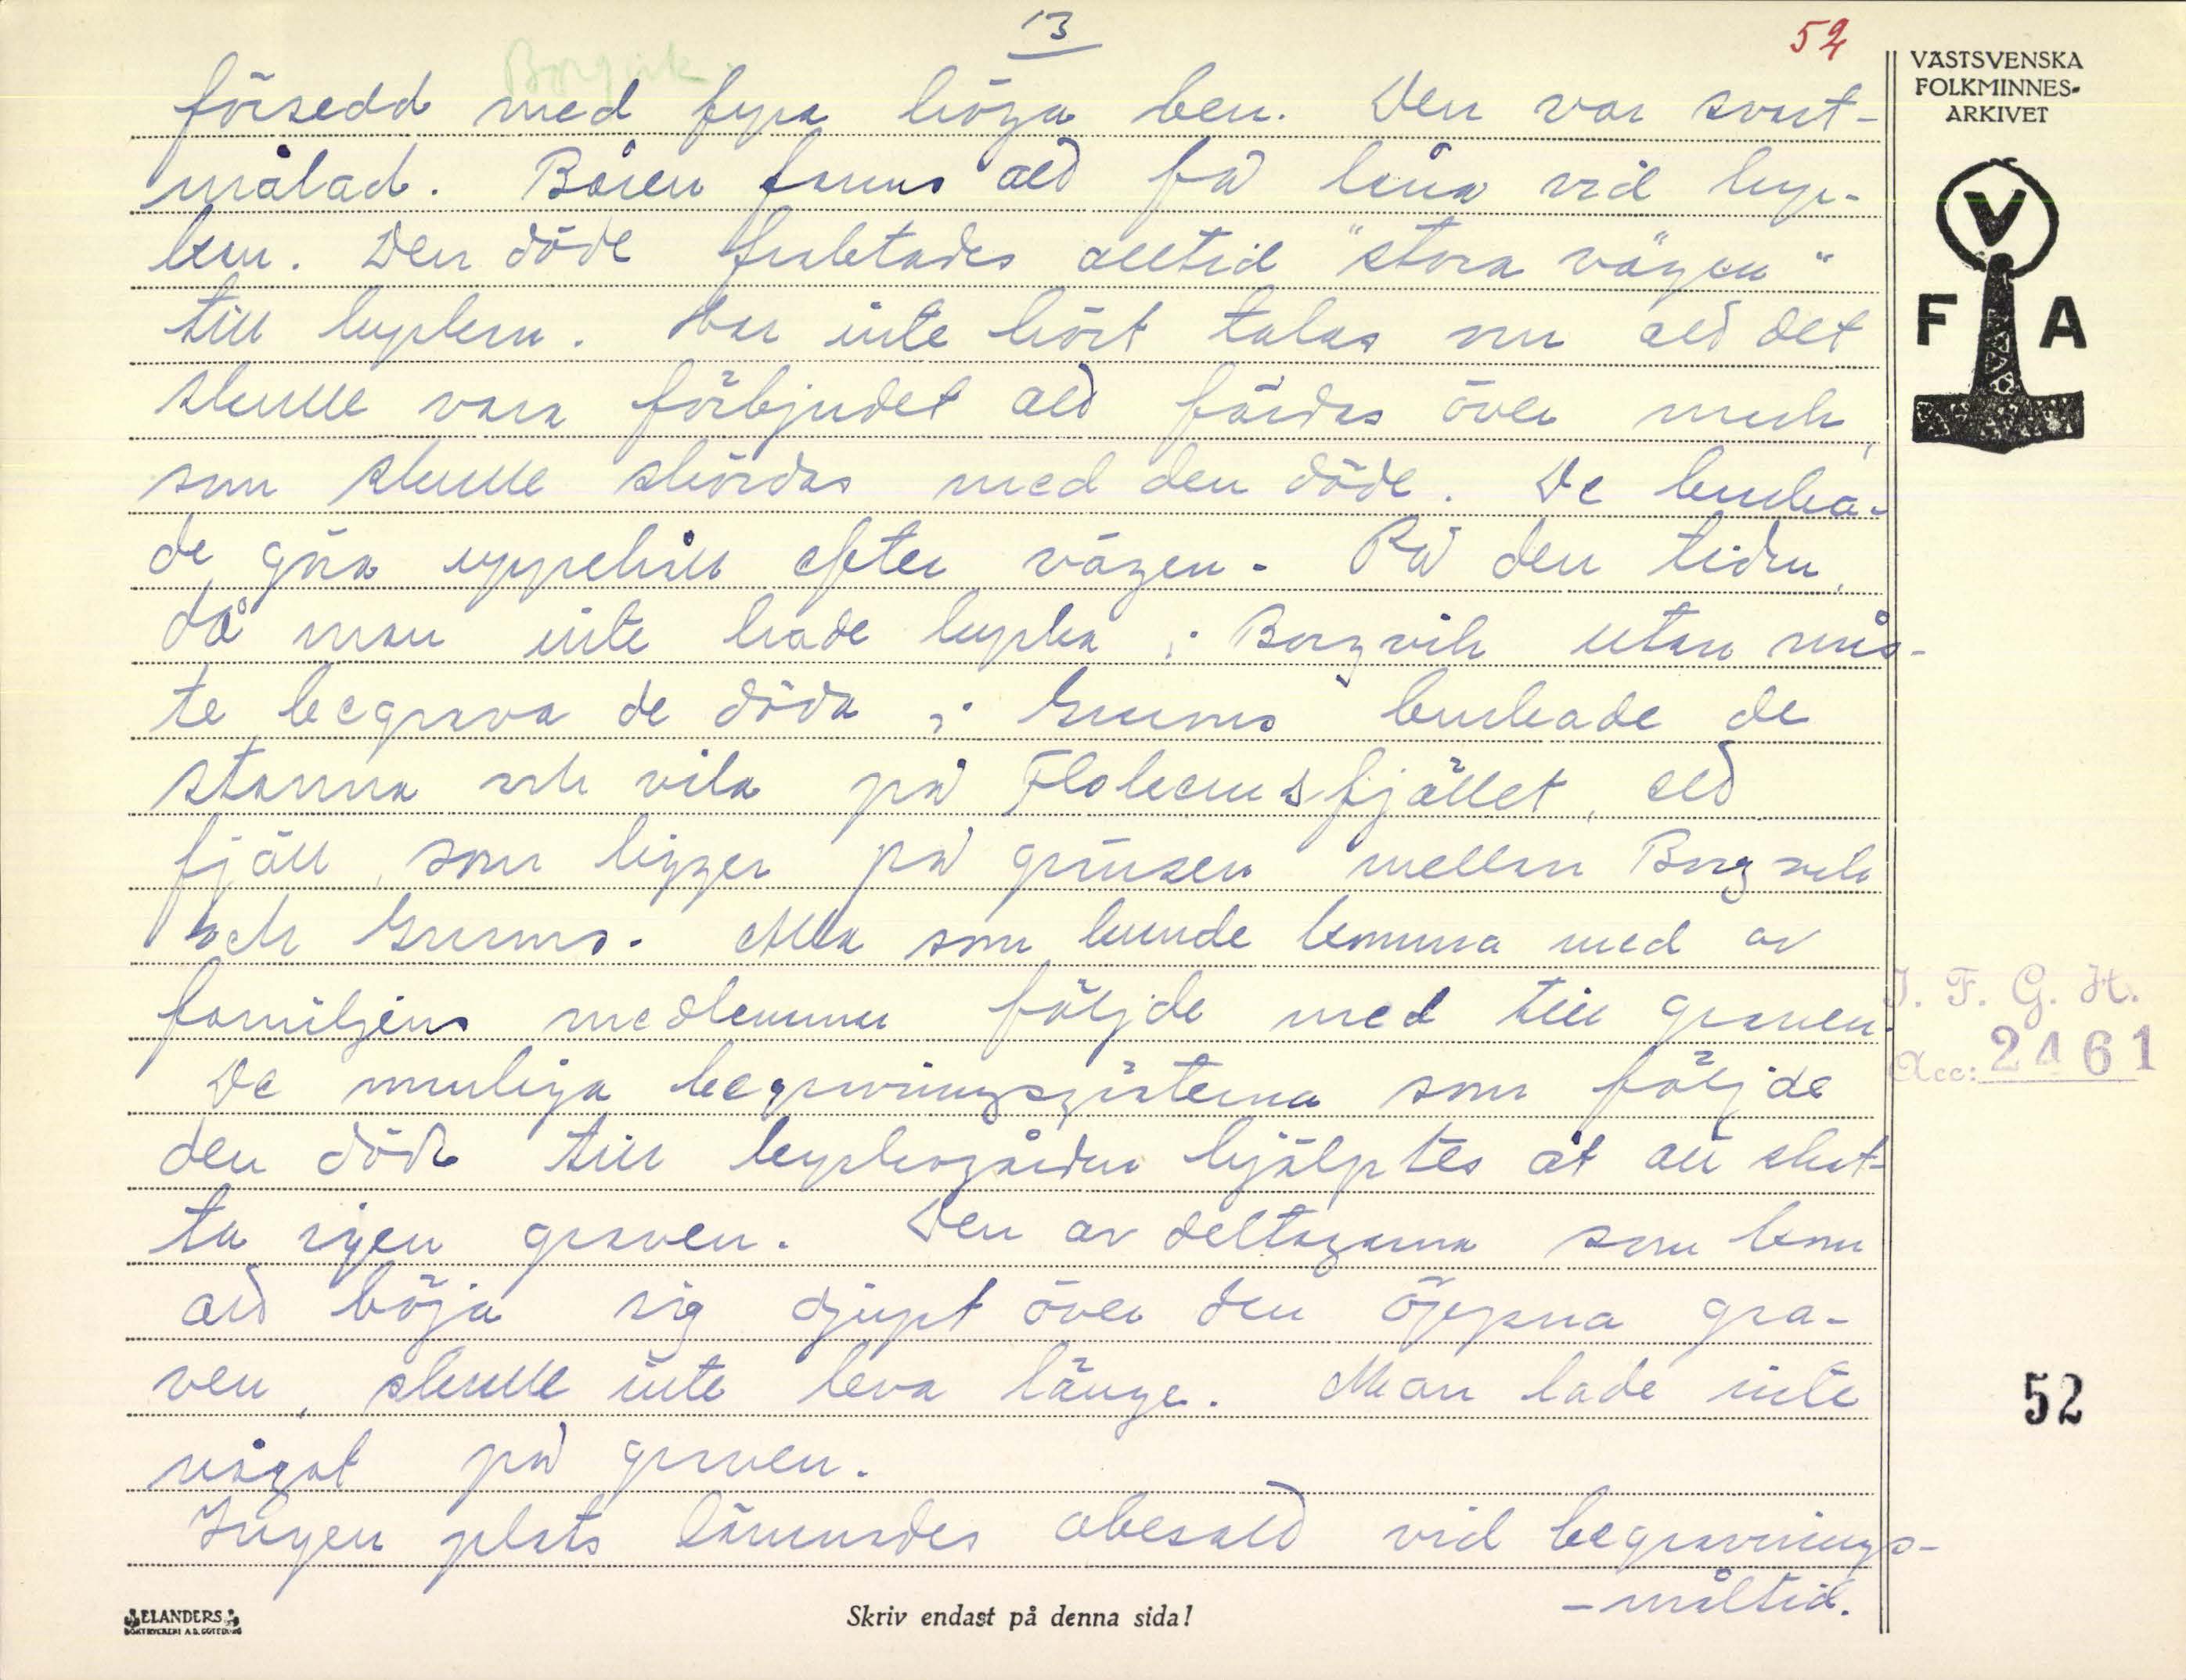 13
52
Borgvik.
VÄSTSVENSKA
FOLKMINNES-
ARKIVET
V
F A
försedd med fyra höga ben. Den var svart-
målad. Båren fanns att få låna vid kyr-
kan. Den döde fraktades alltid "stora vägen"
till kyrkan. Har inte hört talas om att det
skulle vara förbjudet att färdas över mark,
som skulle skördas med den döde. De bruka-
de göra uppehåll efter vägen. På den tiden,
då man inte hade kyrka i Borgvik utan mås-
te begrava de döda i Grums brukade de
stanna och vila på Flokamsfjället, ett
fjäll, som ligger på gränsen mellan Borgvik
och Grums. Alla som kunde komma med av
familjens medlemmar följde med till graven.
De manliga begravningsgästerna som följde
den döde till kyrkogården hjälptes åt att skot-
ta igen graven. Den av deltagarna som kom
att böja sig djupt över den öppna gra-
ven, skulle inte leva länge. Man lade inte
något på graven.
Ingen plats lämnades obesatt vid begravnings-
-måltid.
I. F. G. H.
Acc: 2461
52
ELANDERS
BOKTRYCKERI A.B. GÖTEBORG
Skriv endast på denna sida!